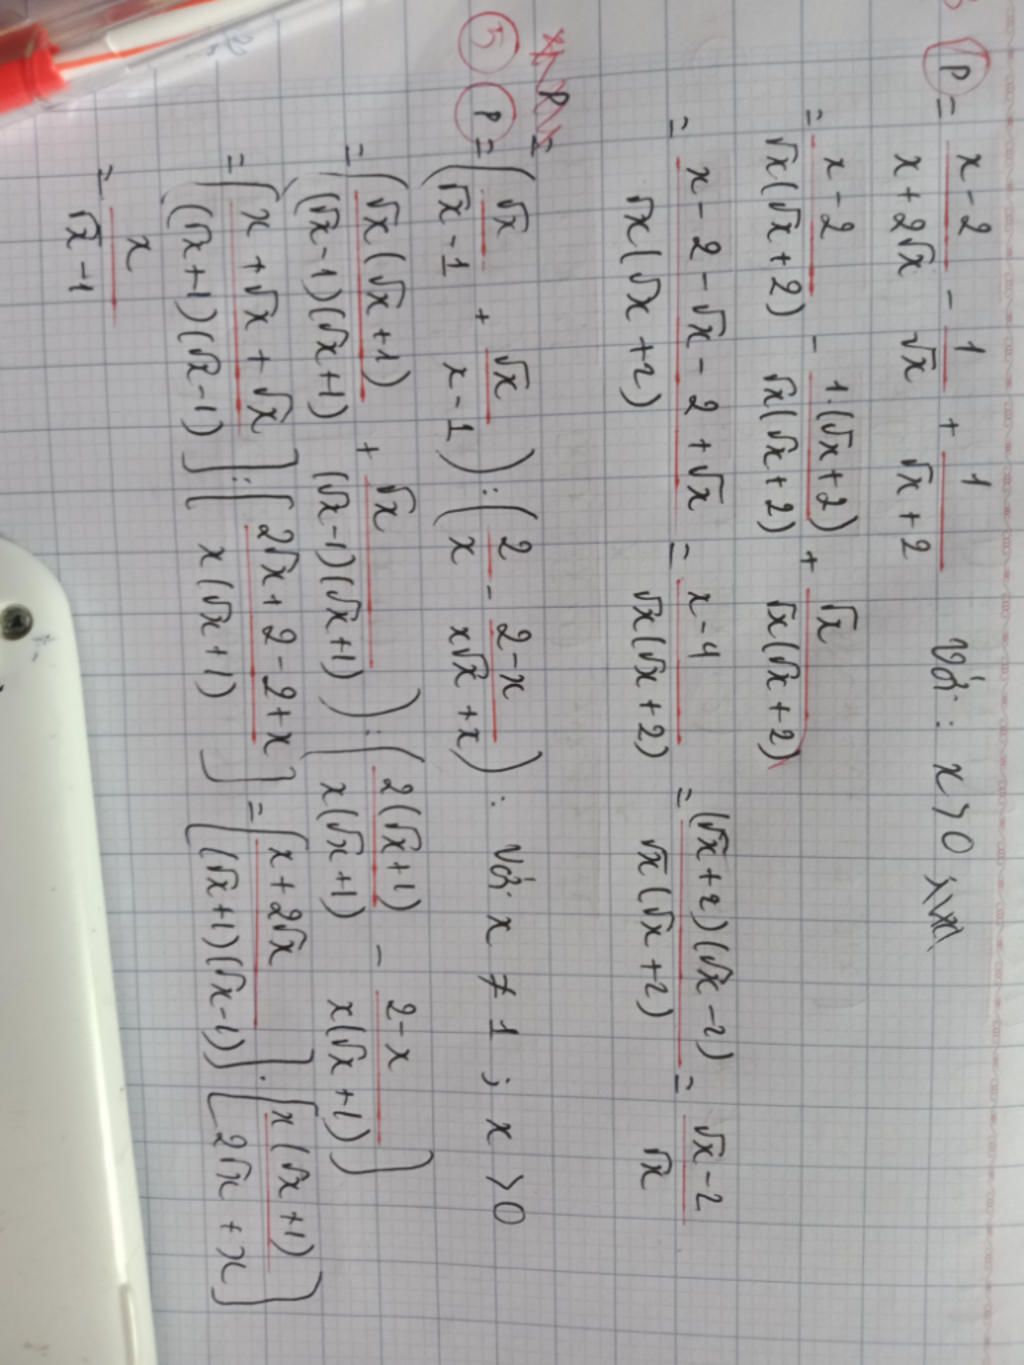 P = (x - 2)/(x + 2√x) - 1/√x + 1/(√x + 2) với: x > 0
= (x - 2)/(√x(√x + 2)) - (1.(√x + 2))/(√x(√x + 2)) + √x/(√x(√x + 2))
= (x - 2 - √x - 2 + √x)/(√x(√x + 2)) = (x - 4)/(√x(√x + 2)) = ((√x + 2)(√x - 2))/(√x(√x + 2)) = (√x - 2)/√x
P =
5 P = (√x/(√x - 1) + √x/(x - 1)) : (2/x - (2 - x)/(x√x + x)) : với x ≠ 1 ; x > 0
= (√x(√x + 1)/((√x - 1)(√x + 1)) + √x/((√x - 1)(√x + 1))) : (2(√x + 1)/(x(√x + 1)) - (2 - x)/(x(√x + 1)))
= [(x + √x + √x)/((√x + 1)(√x - 1))] : [(2√x + 2 - 2 + x)/(x(√x + 1))] = [(x + 2√x)/((√x + 1)(√x - 1))] . [x(√x + 1)/(2√x + x)]
= x/(√x - 1)